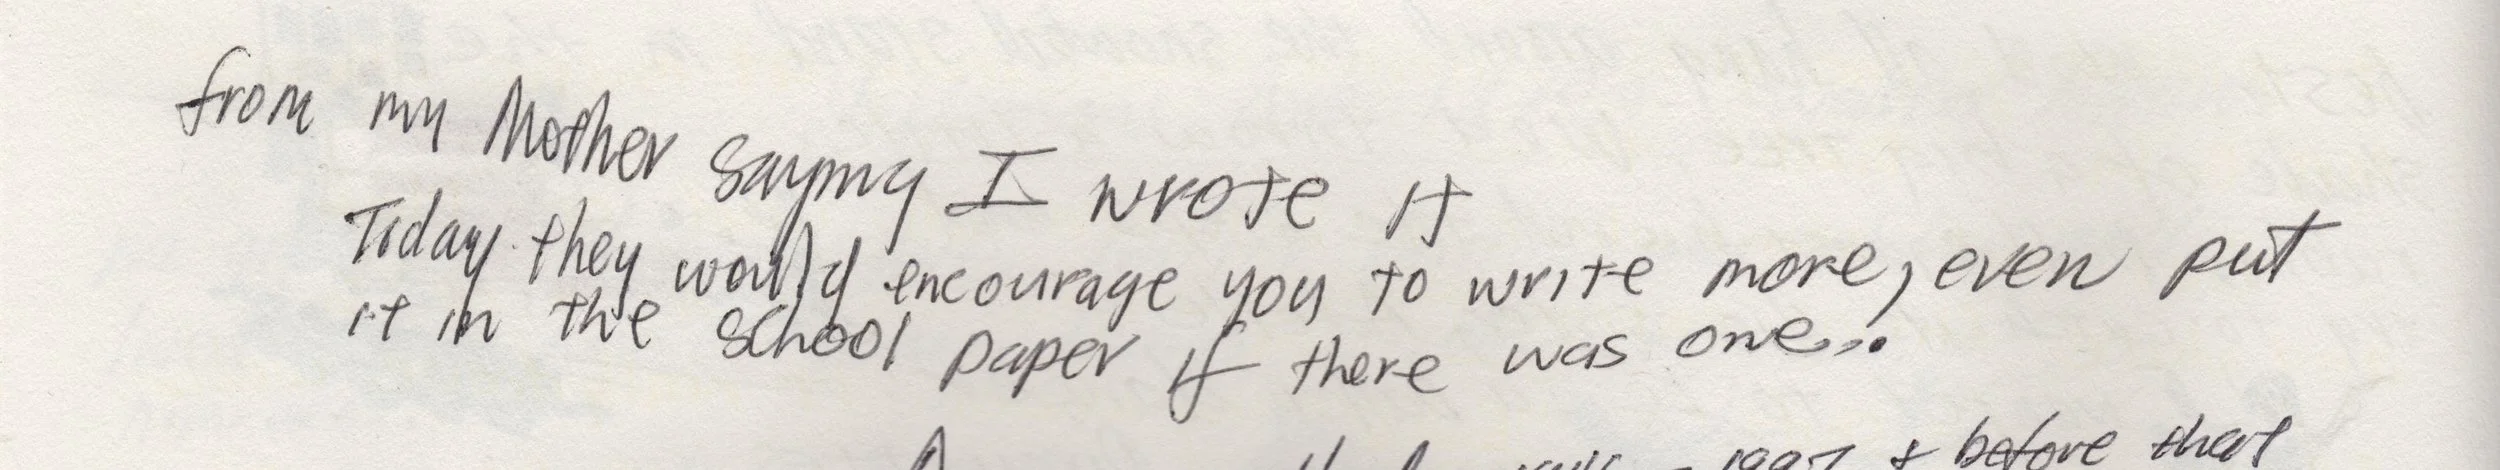 from my Mother saying I wrote it
Today they would encourage you to write more, even put
it in the school paper if there was one..
1997 + before that